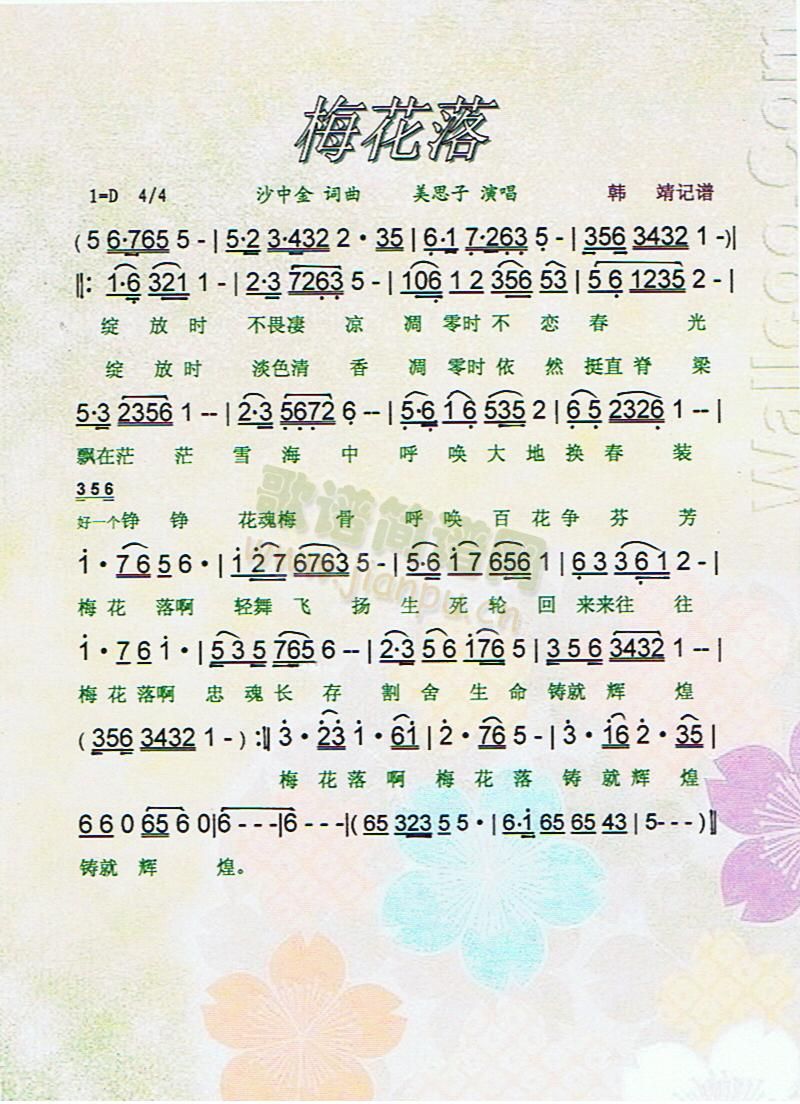 梅花落
1=D 4/4 沙中金 词曲 美思子 演唱 韩 靖记谱
(5 6·765 5 - | 5·2 3·432 2· 35 | 6·1 7·263 5 - | 356 3432 1 -)|
‖: 1·6 321 1 - | 2·3 7263 5 - | 106 1 2 356 53 | 5 6 1235 2 - |
绽 放 时 不畏凄 凉 凋 零时 不 恋 春 光
绽 放 时 淡色清 香 凋 零时 依 然 挺直 脊 梁
5·3 2356 1 -- | 2·3 5672 6 -- | 5·6 1 6 535 2 | 6 5 2326 1 -- |
飘在茫 茫 雪 海 中 呼 唤 大 地 换 春 装
3 5 6
好一个铮 铮 花魂梅 骨 呼 唤 百 花 争 芬 芳
i · 7 6 5 6 · | i 2 7 6763 5 - | 5·6 i 7 656 1 | 6 3 3 6 1 2 - |
梅 花 落啊 轻舞 飞 扬 生 死 轮 回 来来往 往
i · 7 6 i · | 5 3 5 765 6 -- | 2·3 5 6 i76 5 | 3 5 6 3432 1 -- |
梅 花 落啊 忠 魂 长 存 割 舍 生 命 铸就 辉 煌
( 356 3432 1 - ) :‖ 3 · 23 1 · 6i | 2 · 76 5 - | 3 · i6 2 · 35 |
梅 花 落 啊 梅 花 落 铸 就 辉 煌
6 6 0 65 6 0 | 6 - - - | 6 - - - | ( 65 323 5 5 · | 6·i 65 65 43 | 5 - - - )‖
铸就 辉 煌。
歌谱简谱网
www.jianpu.cn
walleoo.com